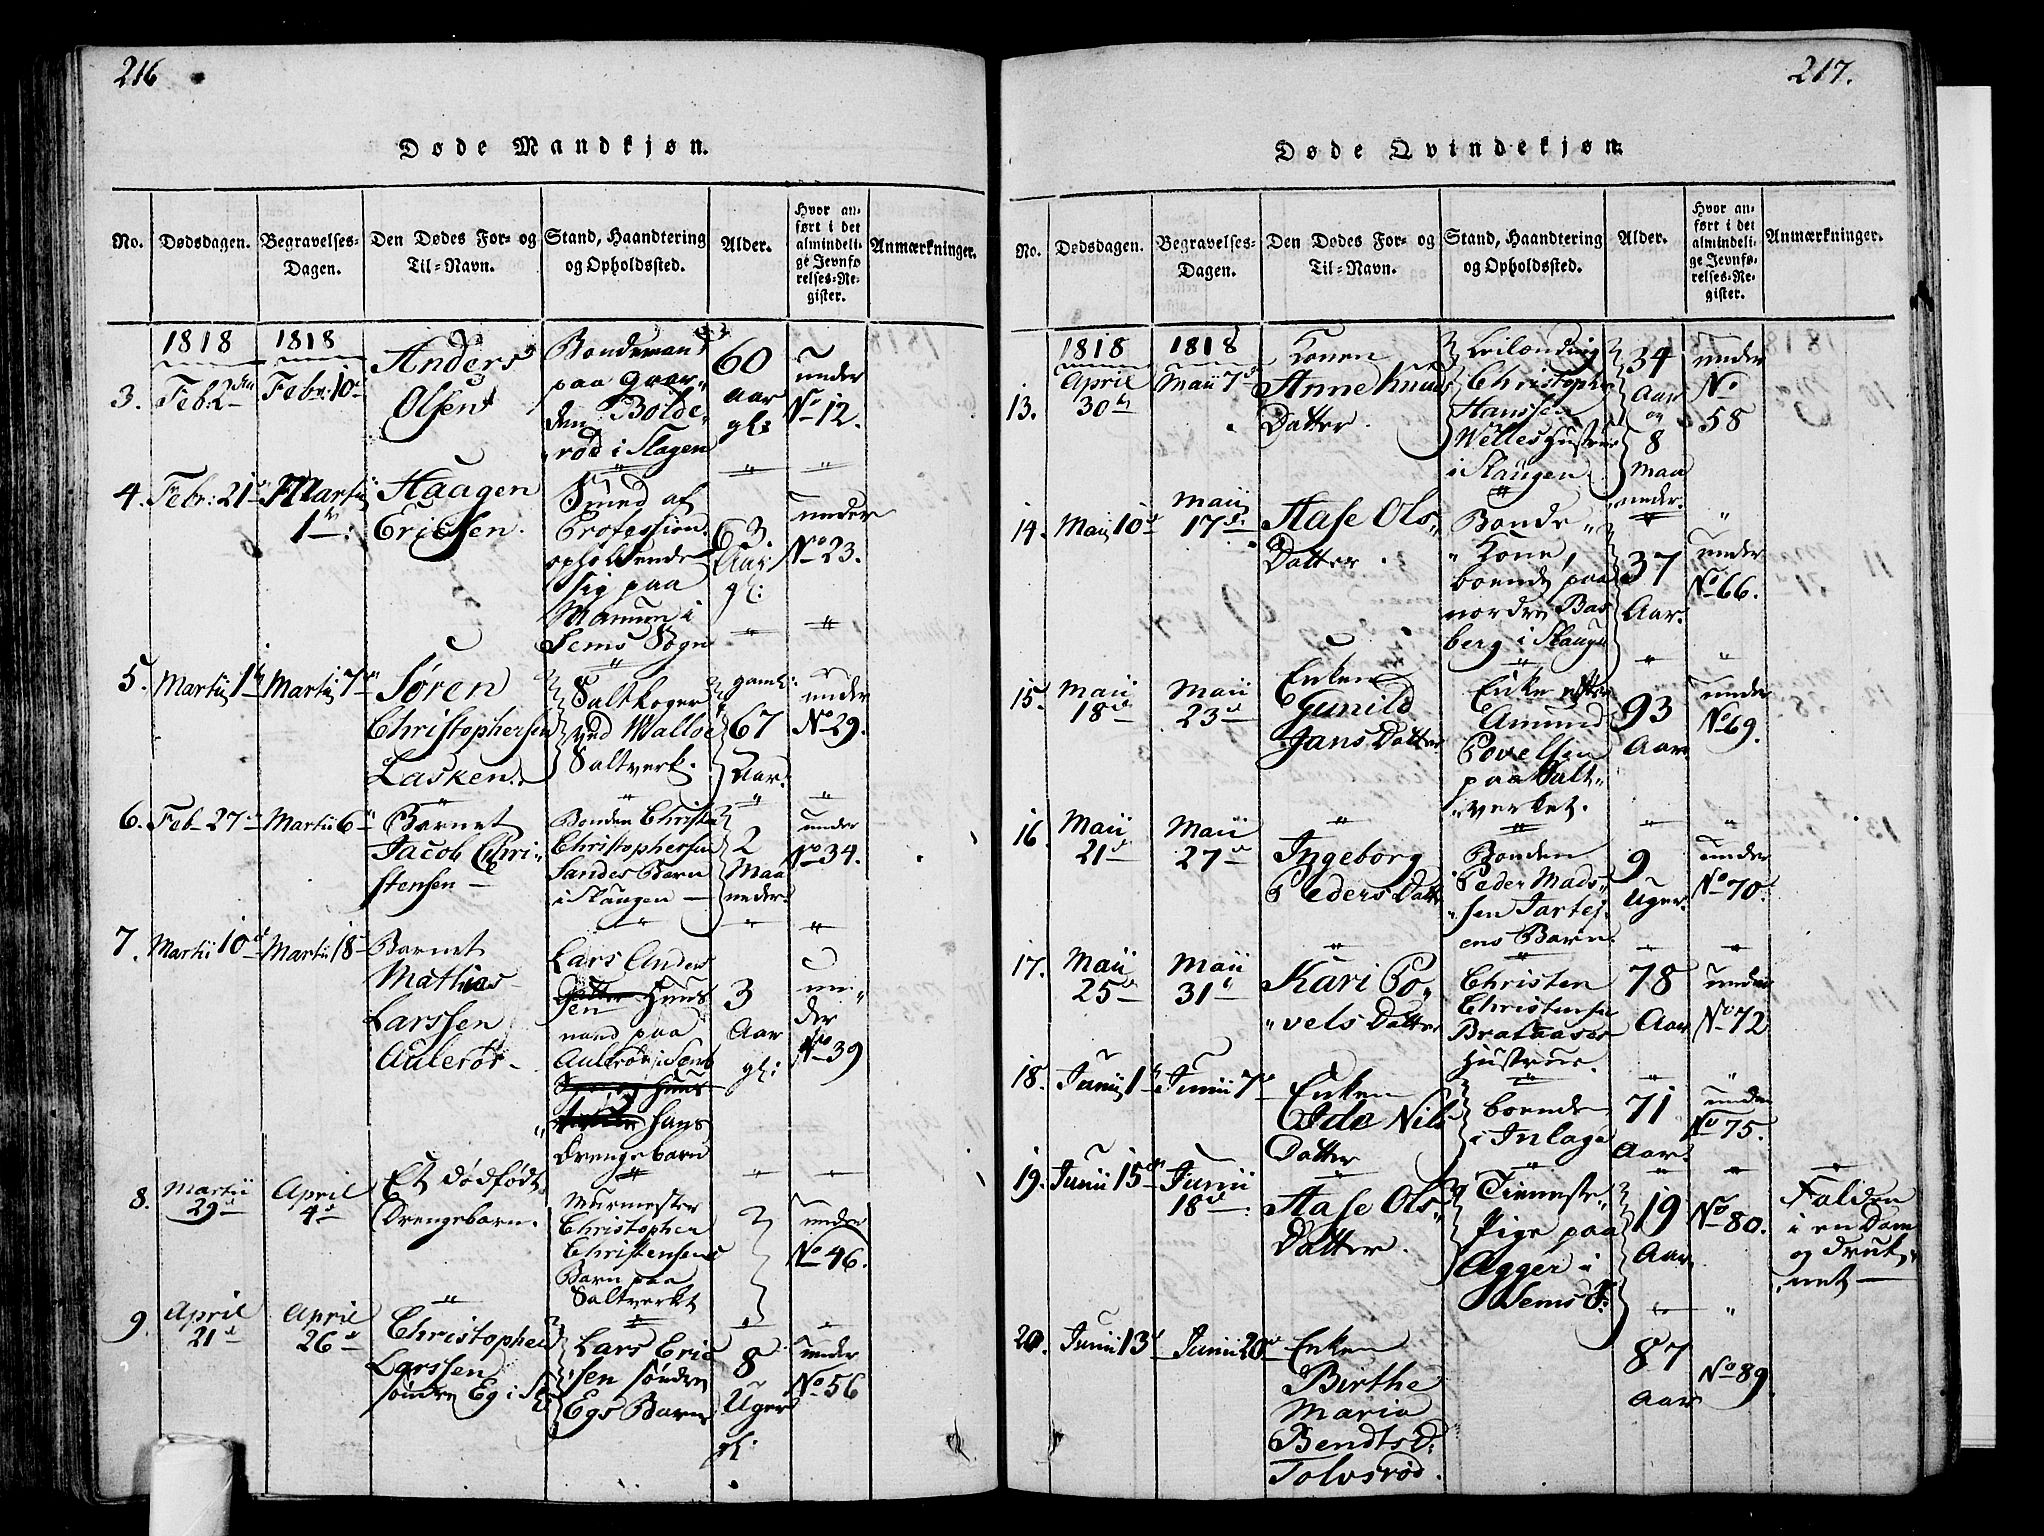 216
Døde Mandkjøn.
No.
Dødsdagen.
Begravelses-
Dagen.
Den Dødes For- og
Til-Navn.
Stand, Haandtering
og Opholdssted.
Alder.
Hvor an-
ført i det
almindeli-
ge Jevnfø-
relses-Re-
gister.
Anmærkninger.
1818
1818
3.
Feb: 2den
Febr: 10de
Anders
Olsen
Bondemand
paa Gaar-
den Bolde-
rød i Slagen
60
Aar
gl:
under
No 12.
4.
Febr: 21
Martii
1
Haagen
Ericksen.
Smed af
Profession.
opholdende
sig paa
i
Sems Sogn
63.
Aar
gl:
under
No 23.
5.
Martii 1
Martii 7
Søren
Christophersen
Lasken.
Saltkoger
ved Walløe
Saltverk.
gaml:
67
Aar.
under
No 29.
6.
Feb 27
Martii 6
Barnet
Jacob Chri-
stensen
Bonden
Christophersen
Sandes Barn
i Slaugen
2
Maa
neder.
under
No 34.
7.
Martii 10
Martii 18
Barnet
Mathias
Larssen
Aulerør
Lars Anders
sen Huus
mand paa
Aulerør i Sem
Huus
hans
Drengebarn
3
Aar
gl:
un-
der
No 39
8.
Martii
29
April
4
Et dødfødt
Drengebarn.
Murmester
Christopher
Christensens
Barn paa
Saltverket
under
No 46.
9.
April
21
April
26
Christopher
Larssen
søndre Eg i
Lars Eric
sen søndre
Egs Barn
8
Uger
gl:
under
No 56
217.
Døde Qvindekjøn.
No.
Dødsdagen.
Begravelses-
Dagen.
Den Dødes For- og
Til-Navn.
Stand, Haandtering
og Opholdssted.
Alder.
Hvor an-
ført i det
almindeli-
ge Jevnfø-
relses-Re-
gister.
Anmærkninger.
1818
1818
13.
April
30
Maii 7
Konen
Anne Knuds
Datter.
Leilænding
Christopher
Hanssen
Welles Hustrue
i Slaugen.
34
Aar
og
8
Maa
neder.
under
No
58
14.
Maii 10
Maii
17
Aase Ols
Datter.
Bonde
Kone,
boende paa
nordre Bas
berg i Slaugen
37
Aar.
under
No 66.
15.
Maii
18
Maii
23
Enken
Gunild
Jans Datter
Enke efter
Amund
Povelsen
paa Salt
verket.
93
Aar
under
No 69.
16.
Maii
21
Maii
27
Ingeborg
Peders Datter
Bonden
Peder Mads
sen
ens Barn.
9
Uger.
under
No 70.
17.
Maii
25
Maii
31
Kari Po
vels Datter
Christen
Christensen
Brataases
Hustrue.
78
Aar
under
No 72
18.
Junii 1
Junii 7
Enken
Nils
Datter
boende
i Inlaga
71
Aar.
under
No 75.
19.
Junii 15
Junii
18
Aase Ols
Datter.
Tieneste
Pige paa
Agger i
Sems S:
19
Aar
No 80.
Falden
i en Dam
og druk
net
20.
Junii 13
Junii 20
Enken
Birthe
Maria
Bendts D:
Tolvsrød.
87
Aar
No 89.